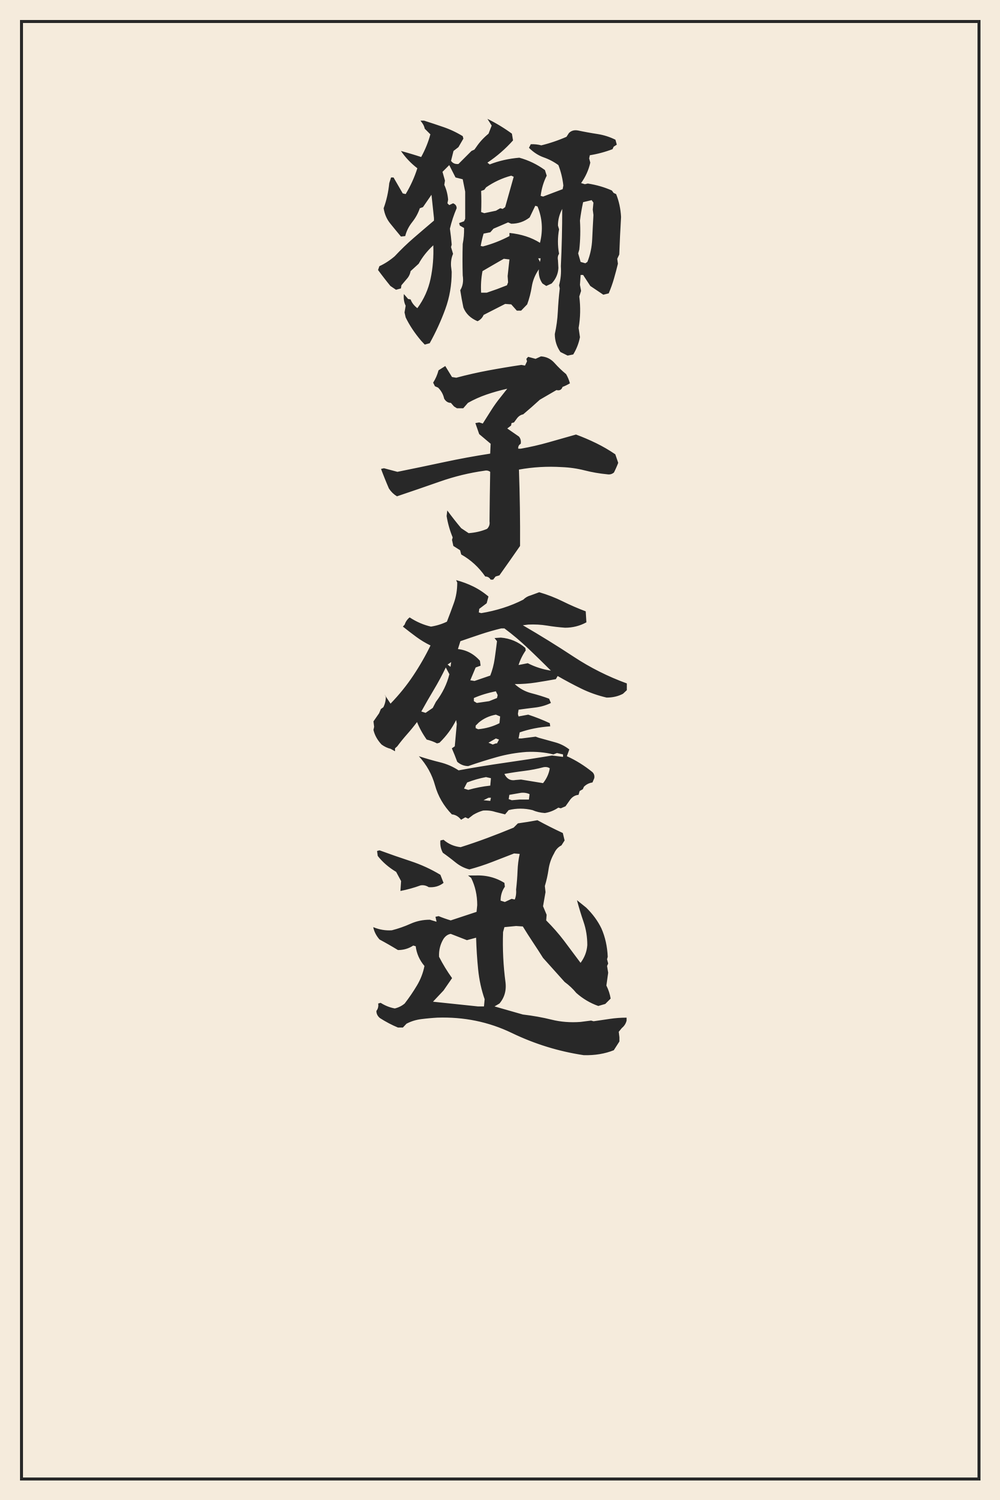 獅子奮迅